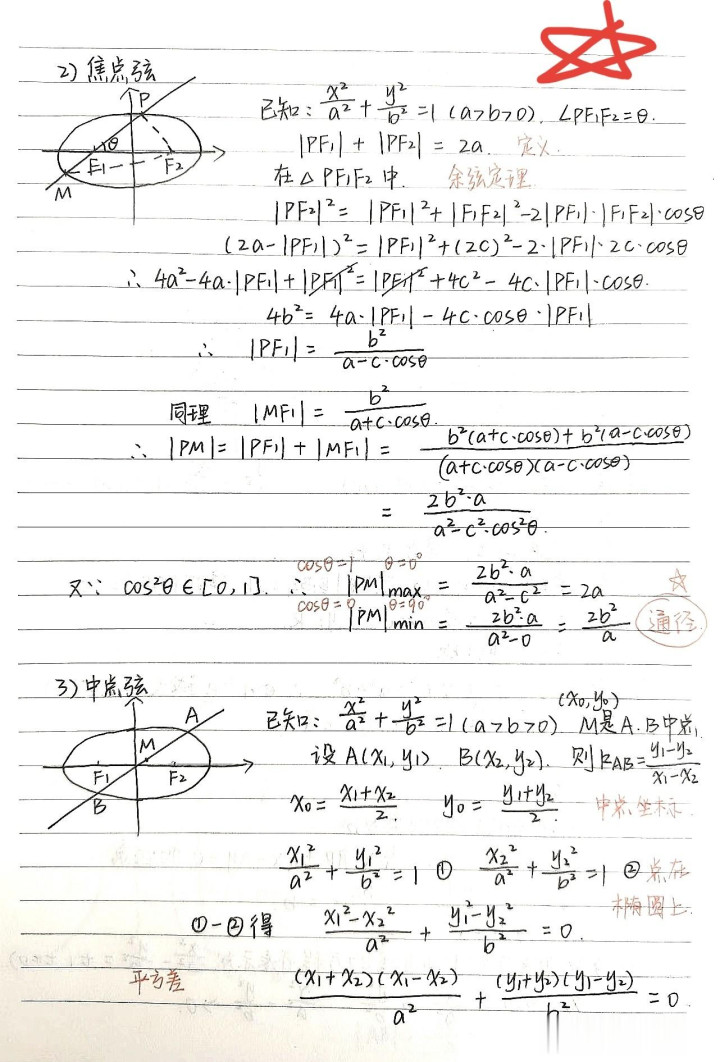 2) 焦点弦
P
θ
F1
F2
M
已知: x²/a² + y²/b² = 1 (a>b>0). ∠PF1F2=θ.
|PF1| + |PF2| = 2a. 定义
在△PF1F2中. 余弦定理
|PF2|² = |PF1|² + |F1F2|² - 2|PF1|·|F1F2|·cosθ
(2a-|PF1|)² = |PF1|² + (2c)² - 2·|PF1|·2c·cosθ
∴ 4a²-4a·|PF1| + |PF1|² = |PF1|² + 4c² - 4c·|PF1|·cosθ.
4b² = 4a·|PF1| - 4c·cosθ·|PF1|
∴ |PF1| = b²/(a-c·cosθ)
同理 |MF1| = b²/(a+c·cosθ).
∴ |PM| = |PF1| + |MF1| = (b²(a+c·cosθ)+b²(a-c·cosθ))/((a+c·cosθ)(a-c·cosθ))
= 2b²·a/(a²-c²·cos²θ).
cosθ=1 θ=0°
又∵ cos²θ∈[0,1]. ∴ |PM|max = 2b²·a/(a²-c²) = 2a ☆
cosθ=0 θ=90°
|PM|min = 2b²·a/(a²-0) = 2b²/a 通径.
3) 中点弦
A
M
F1
F2
B
(x0,y0)
已知: x²/a² + y²/b² = 1 (a>b>0) M是A.B中点.
设A(x1,y1) B(x2,y2). 则kAB = (y1-y2)/(x1-x2)
x0 = (x1+x2)/2. y0 = (y1+y2)/2. 中点坐标.
x1²/a² + y1²/b² = 1 ① x2²/a² + y2²/b² = 1 ② 点在
椭圆上.
①-②得 (x1²-x2²)/a² + (y1²-y2²)/b² = 0.
平方差 (x1+x2)(x1-x2)/a² + (y1+y2)(y1-y2)/b² = 0